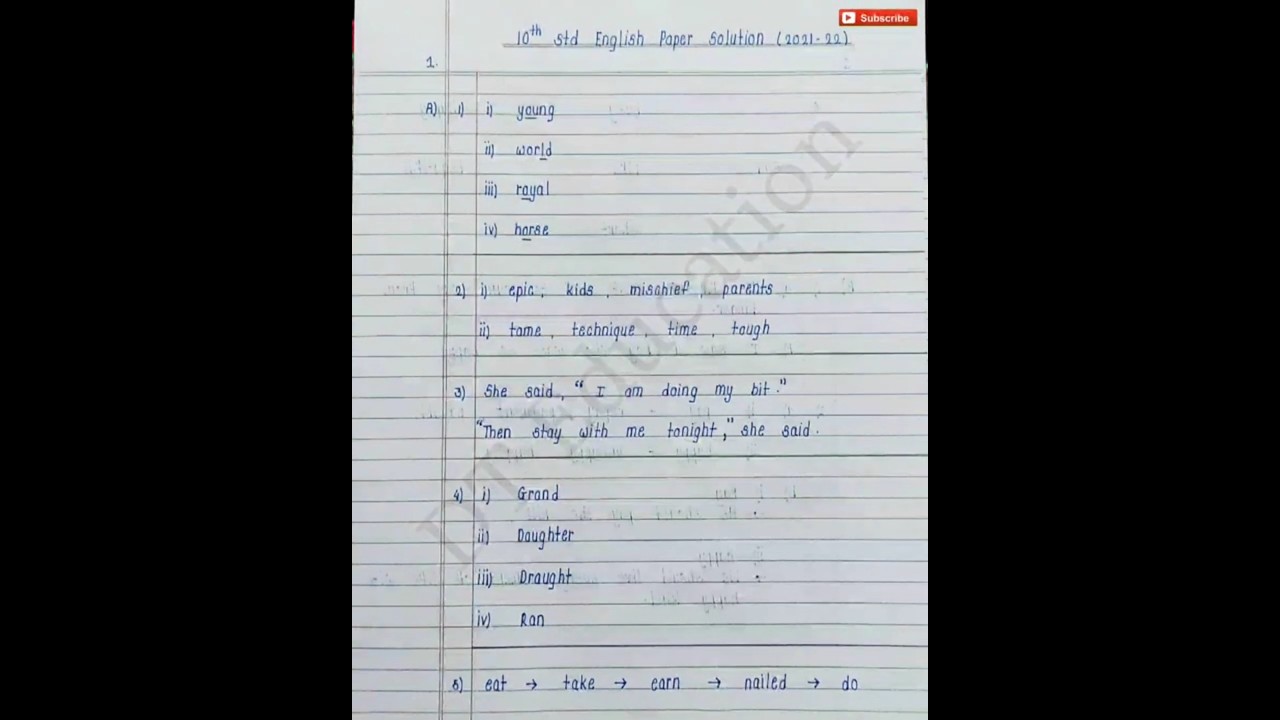 Subscribe
10th std English Paper Solution (2021-22)
1.
A) 1) i) young
ii) world
iii) royal
iv) horse
2) i) epic, kids, mischief, parents
ii) tame, technique, time, tough
3) She said, "I am doing my bit."
"Then stay with me tonight," she said.
4) i) Grand
ii) Daughter
iii) Draught
iv) Ran
5) eat → take → earn → nailed → do
DT Education